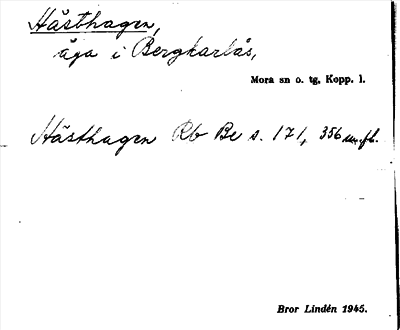 Hästhagen,
äga i Bergkarlås,
Mora sn o. tg, Kopp. l.
Hästhagen Rb Be s. 171, 356 m. fl.
Bror Lindén 1945.